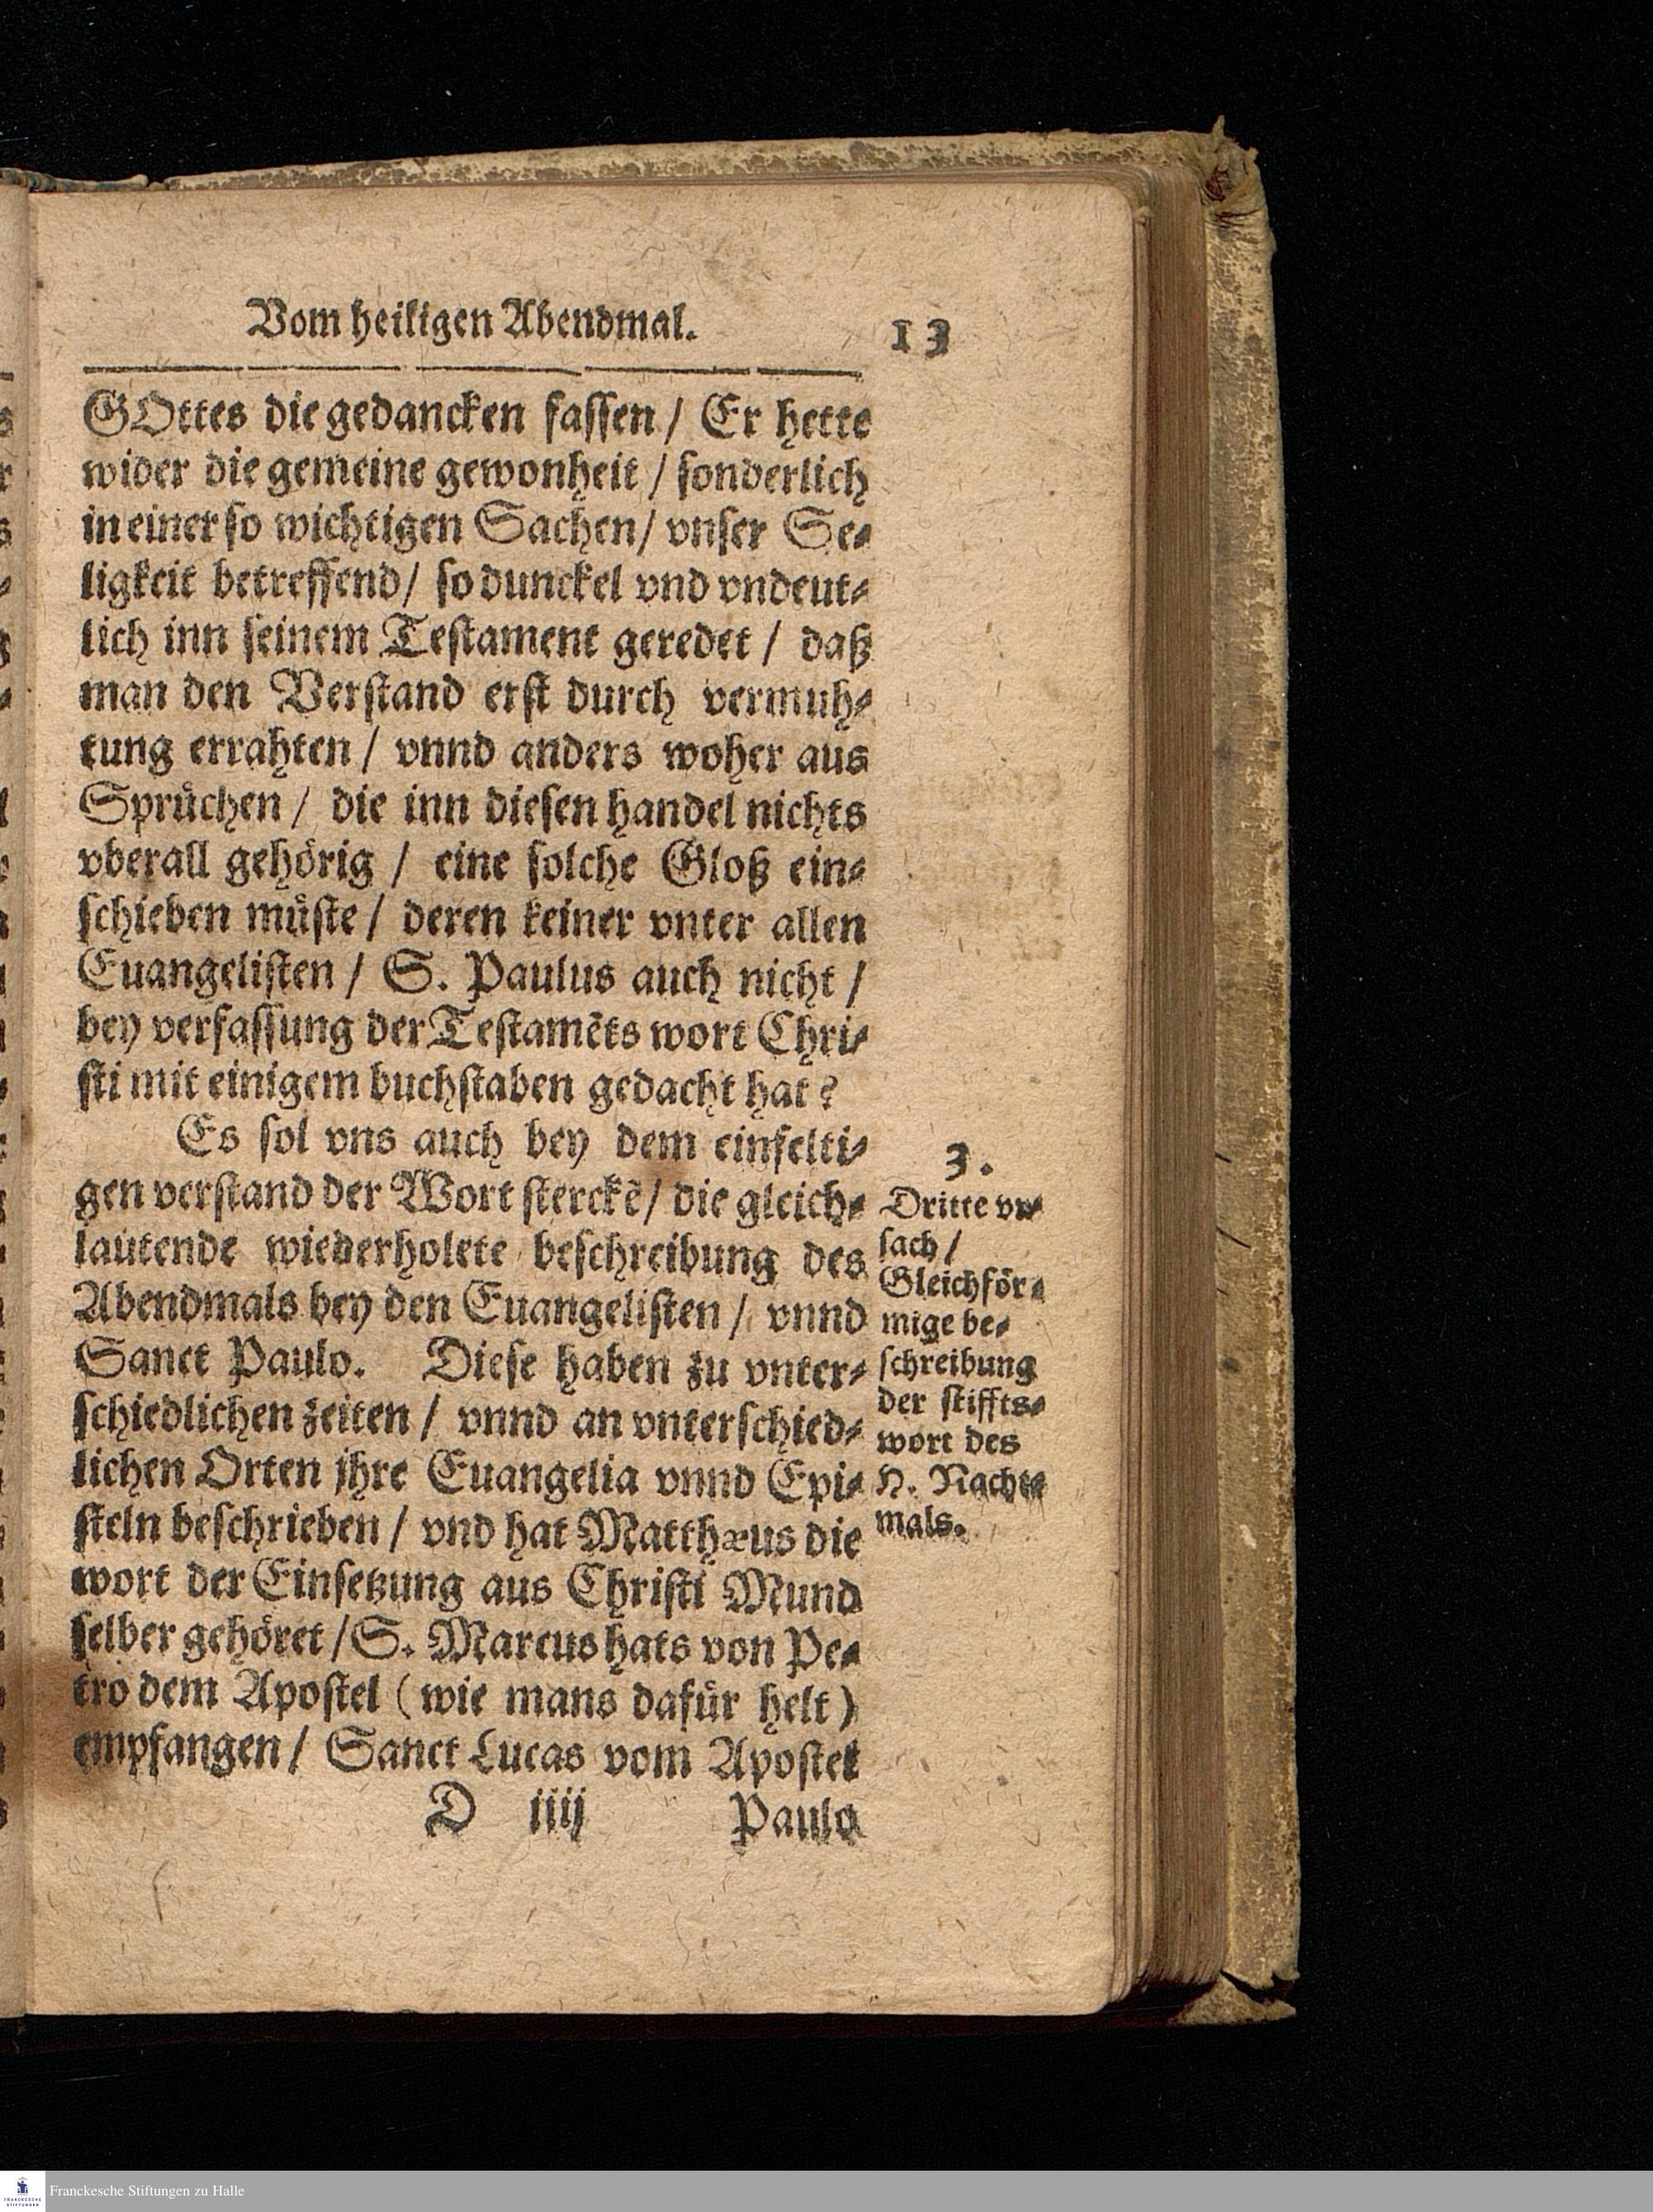 Vom heiligen Abendmal.
13
GOttes die gedancken fassen / Er hette
wider die gemeine gewonheit / sonderlich
in einer so wichtigen Sachen / vnser Se-
ligkeit betreffend / so dunckel vnd vndeut-
lich inn seinem Testament geredet / daß
man den Verstand erst durch vermuh-
tung errahten / vnnd anders woher aus
Sprüchen / die inn diesen handel nichts
vberall gehörig / eine solche Gloß ein-
schieben müste / deren keiner vnter allen
Euangelisten / S. Paulus auch nicht /
bey verfassung der Testamẽts wort Chri-
sti mit einigem buchstaben gedacht hat?
Es sol vns auch bey dem einfelti-
gen verstand der Wort sterckẽ / die gleich-
lautende wiederholete beschreibung des
Abendmals bey den Euangelisten / vnnd
Sanct Paulo. Diese haben zu vnter-
schiedlichen zeiten / vnnd an vnterschied-
lichen Orten jhre Euangelia vnnd Epi-
steln beschrieben / vnd hat Matthæus die
wort der Einsetzung aus Christi Mund
selber gehöret / S. Marcus hats von Pe-
tro dem Apostel (wie mans dafür helt)
empfangen / Sanct Lucas vom Apostel
D iiij Paulo
3.
Dritte vr-
sach /
Gleichför-
mige be-
schreibung
der stiffts-
wort des
H. Nacht-
mals.
Franckesche Stiftungen zu Halle